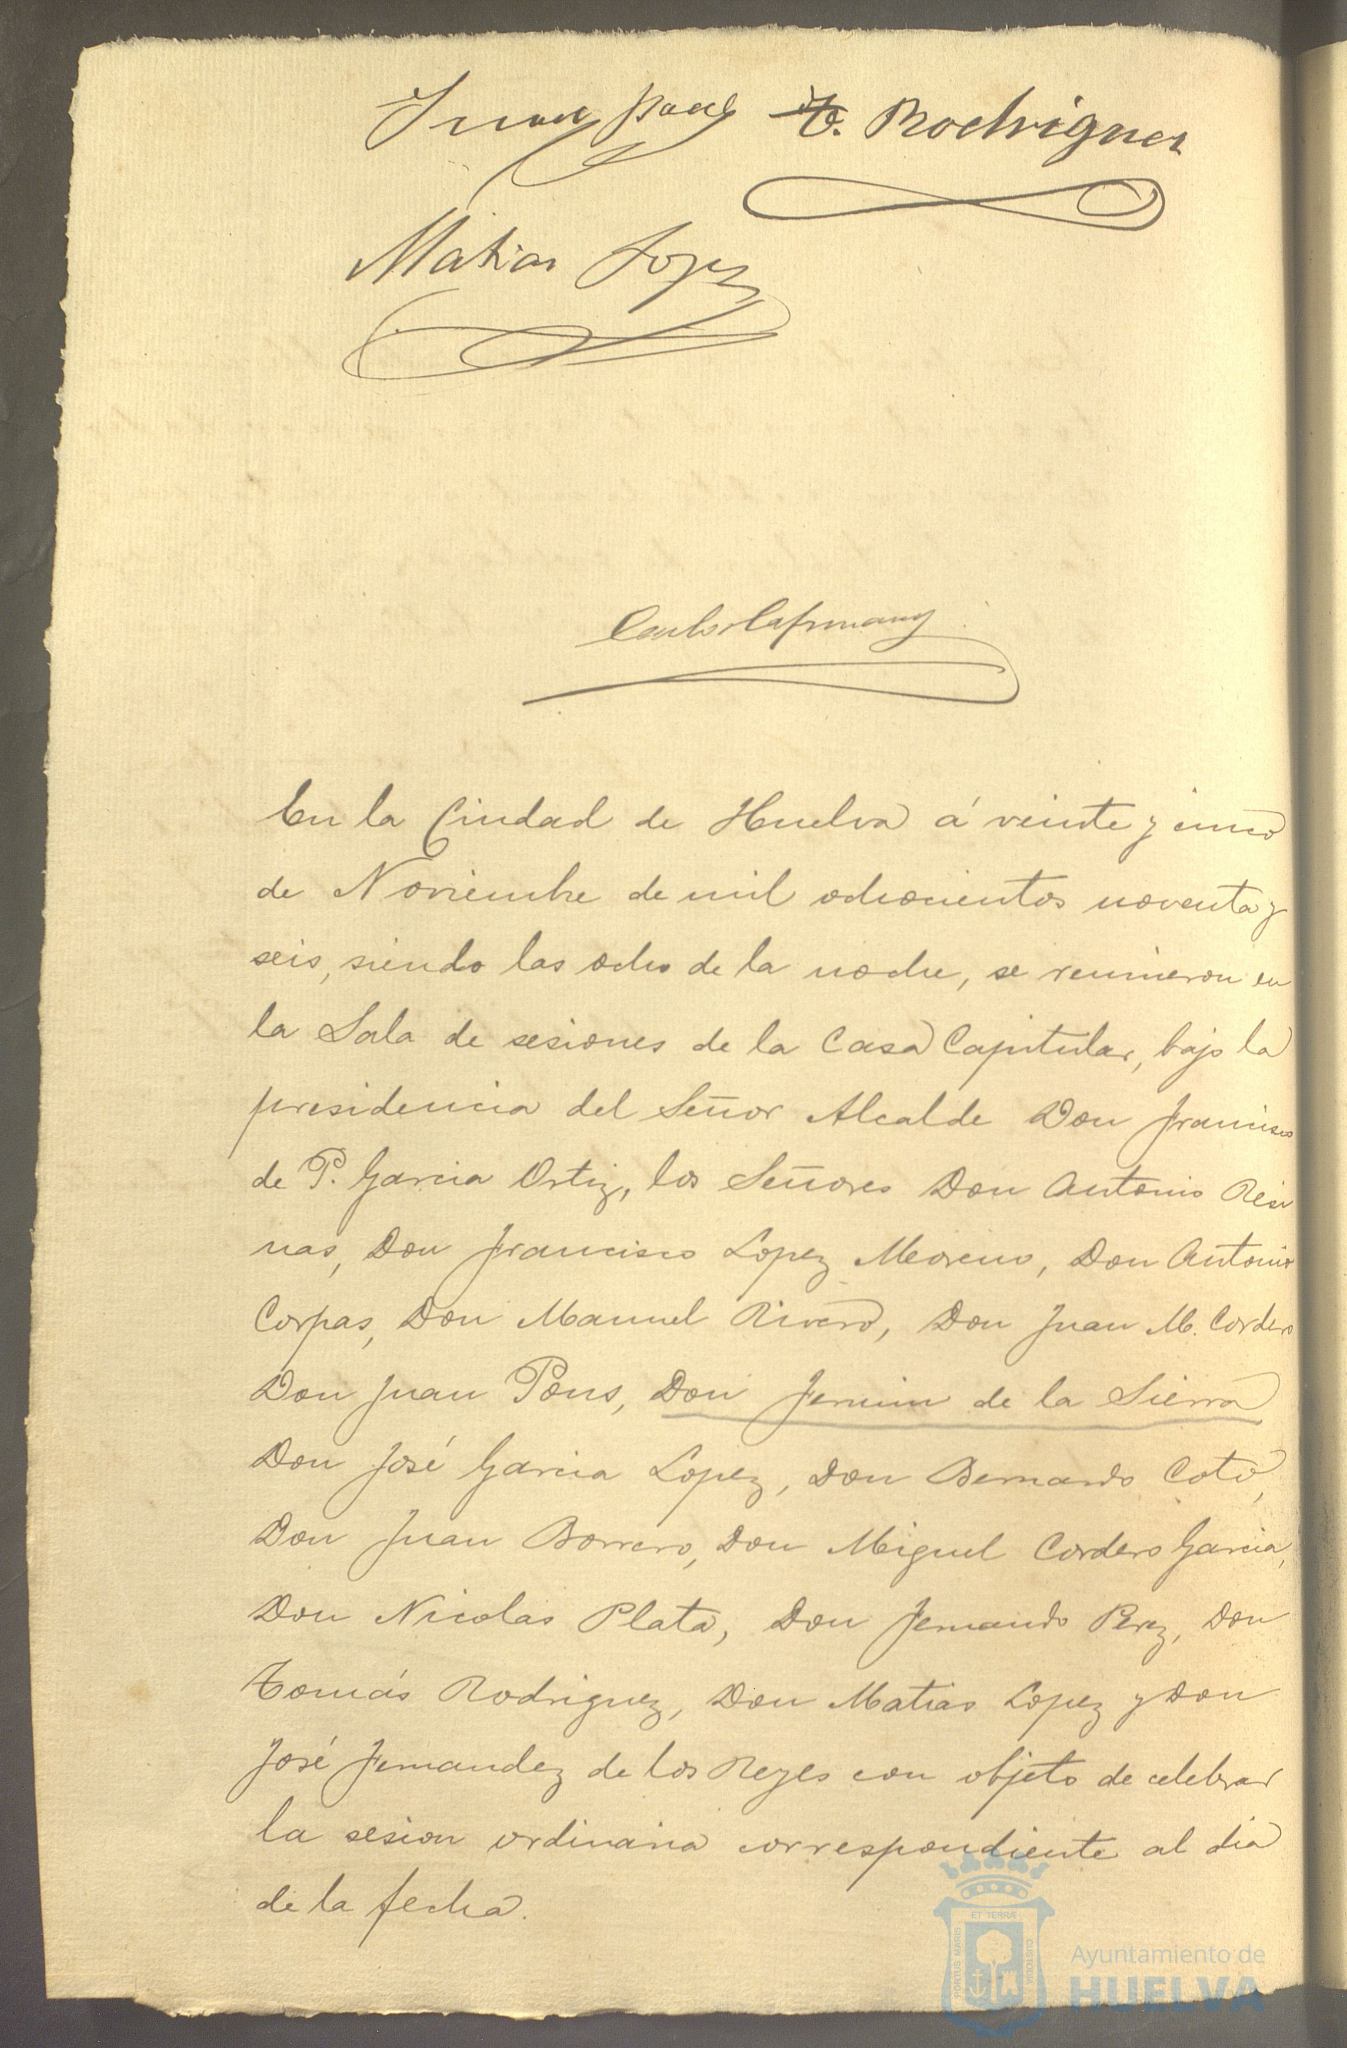 Juan Pons T. Rodriguez
Matias Lopez
Carlos Capmany
En la Ciudad de Huelva á veinte y cinco
de Noviembre de mil ochocientos noventa y
seis, siendo las ocho de la noche, se reunieron en
la Sala de sesiones de la Casa Capitular, bajo la
presidencia del Señor Alcalde Don Francisco
de P. Garcia Ortiz, los Señores Don Antonio Resi
nas, Don Francisco Lopez Moreno, Don Antonio
Corpas, Don Manuel Rivero, Don Juan M. Cordero
Don Juan Pons, Don Fermin de la Sierra
Don José Garcia Lopez, Don Bernardo Coto,
Don Juan Borrero, Don Miguel Cordero Garcia,
Don Nicolas Plata, Don Fernando Perez, Don
Tomás Rodriguez, Don Matias Lopez y Don
José Fernandez de los Reyes con objeto de celebrar
la sesion ordinaria correspondiente al dia
de la fecha.
PORTUS MARIS ET TERRÆ CUSTODIA
Ayuntamiento de
HUELVA